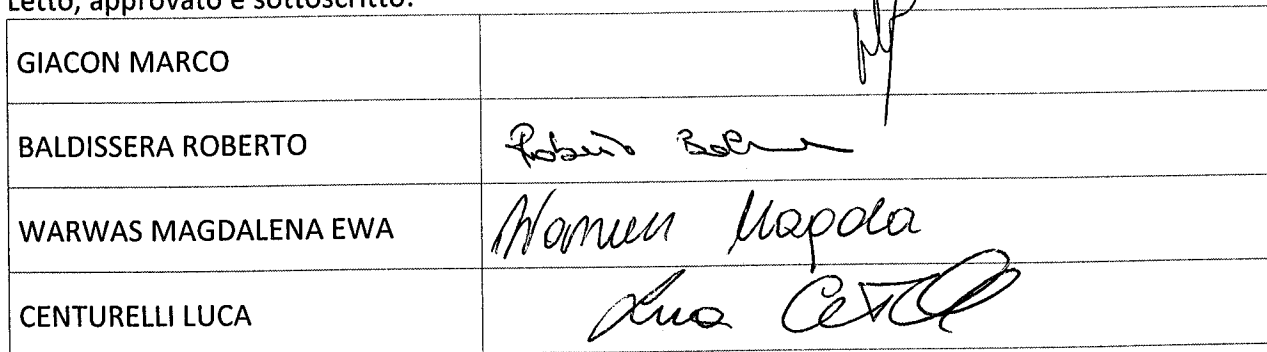 Letto, approvato e sottoscritto.
GIACON MARCO
BALDISSERA ROBERTO Roberto
WARWAS MAGDALENA EWA Magda
CENTURELLI LUCA Luca